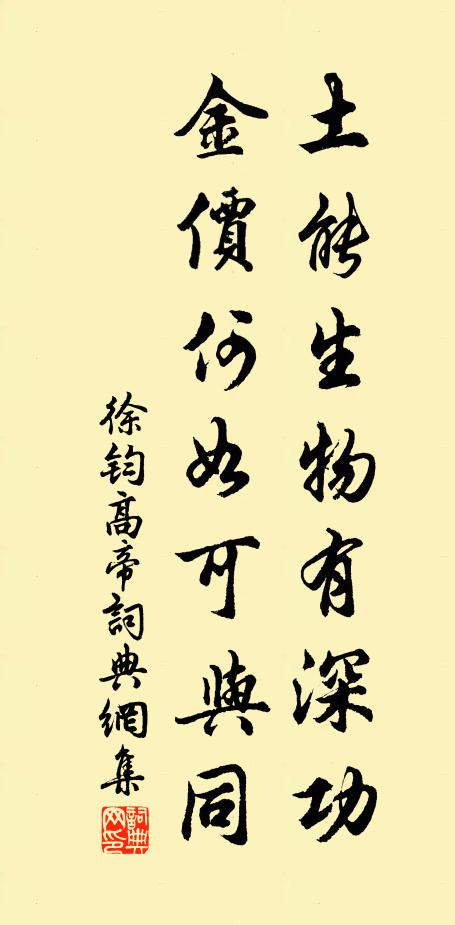 土能生物有深功
金價何如可與同
徐鈞高帝詞典網集
詞典網印